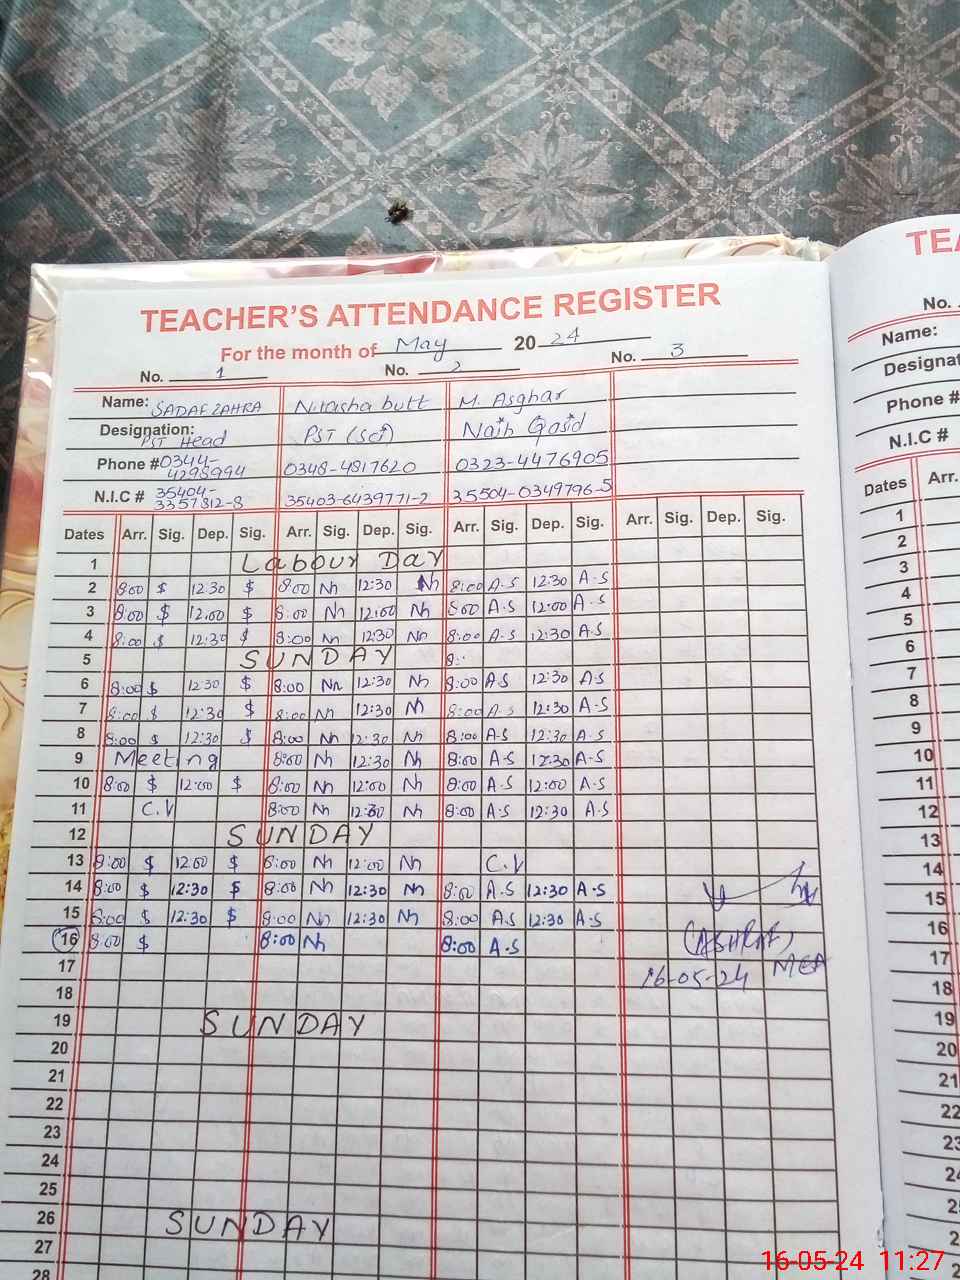 TEACHER'S ATTENDANCE REGISTER
For the month of May 2024
No. 1 No. 2 No. 3
Name: SADAF ZAHRA Nitasha butt M. Asghar
Designation: PST Head PST (Sci) Naib Qasid
Phone # 0344-4298994 0348-4817620 0323-4476905
N.I.C # 35404-3357812-8 35403-6439771-2 35504-0349796-5
Dates Arr. Sig. Dep. Sig. Arr. Sig. Dep. Sig. Arr. Sig. Dep. Sig. Arr. Sig. Dep. Sig.
1 Labour Day
2 8:00 $ 12:30 $ 8:00 Nn 12:30 Nn 8:00 A-S 12:30 A-S
3 8:00 $ 12:00 $ 8:00 Nn 12:00 Nn 8:00 A-S 12:00 A-S
4 8:00 $ 12:30 $ 8:00 Nn 12:30 Nn 8:00 A-S 12:30 A-S
5 SUNDAY 8:
6 8:00 $ 12:30 $ 8:00 Nn 12:30 Nn 8:00 A-S 12:30 A-S
7 8:00 $ 12:30 $ 8:00 Nn 12:30 Nn 8:00 A-S 12:30 A-S
8 8:00 $ 12:30 $ 8:00 Nn 12:30 Nn 8:00 A-S 12:30 A-S
9 Meeting 8:00 Nn 12:30 Nn 8:00 A-S 12:30 A-S
10 8:00 $ 12:00 $ 8:00 Nn 12:00 Nn 8:00 A-S 12:00 A-S
11 C.V 8:00 Nn 12:30 Nn 8:00 A-S 12:30 A-S
12 SUNDAY
13 8:00 $ 12:00 $ 8:00 Nn 12:00 Nn C.V
14 8:00 $ 12:30 $ 8:00 Nn 12:30 Nn 8:00 A-S 12:30 A-S
15 8:00 $ 12:30 $ 8:00 Nn 12:30 Nn 8:00 A.S 12:30 A-S
16 8:00 $ 8:00 Nn 8:00 A-S (ASHRAF)
17 16-05-24 MEA
18
19 SUNDAY
20
21
22
23
24
25
26 SUNDAY
27
28
TEA
No.
Name:
Designat
Phone #
N.I.C #
Dates Arr.
1
2
3
4
5
6
7
8
9
10
11
12
13
14
15
16
17
18
19
20
21
22
23
24
16-05-24 11:27